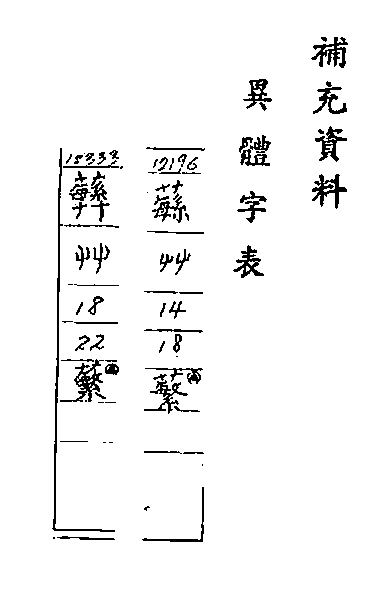 補充資料
異體字表
12196
艸
14
18
蘩
15333
艸
18
22
蘩